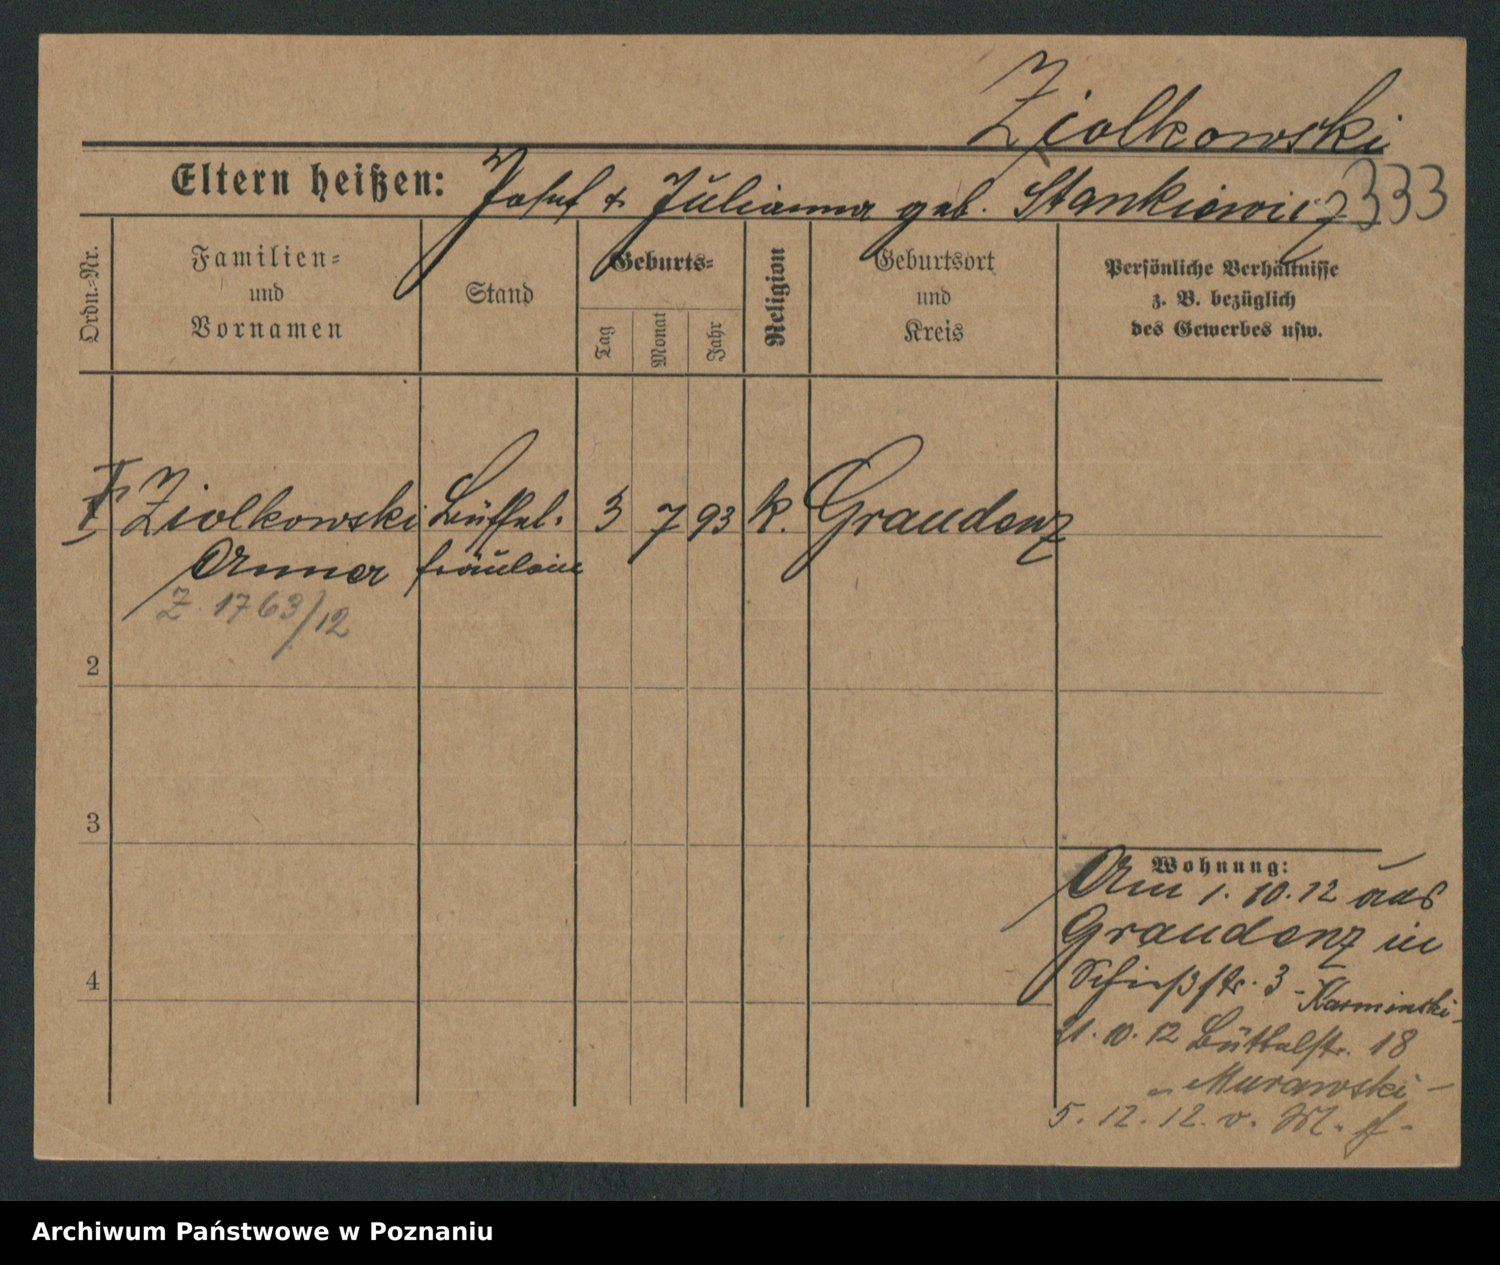 Ziolkowski
Eltern heißen: Josef & Julianna geb. Stankiewicz 333
Ordn.-Nr.
Familien-
und
Vornamen
Stand
Geburts-
Tag
Monat
Jahr
Religion
Geburtsort
und
Kreis
Persönliche Verhältnisse
z. B. bezüglich
des Gewerbes usw.
Ziolkowski Büffet. 3 7 93 k. Graudenz
Anna fräulein
Z. 1763/12
2
3
4
Wohnung:
Am 1.10.12 aus
Graudenz in
Schießstr. 3 - Karminski -
21.10.12 Büttelstr. 18
- Murawski -
5.12.12. v. M.
Archiwum Państwowe w Poznaniu